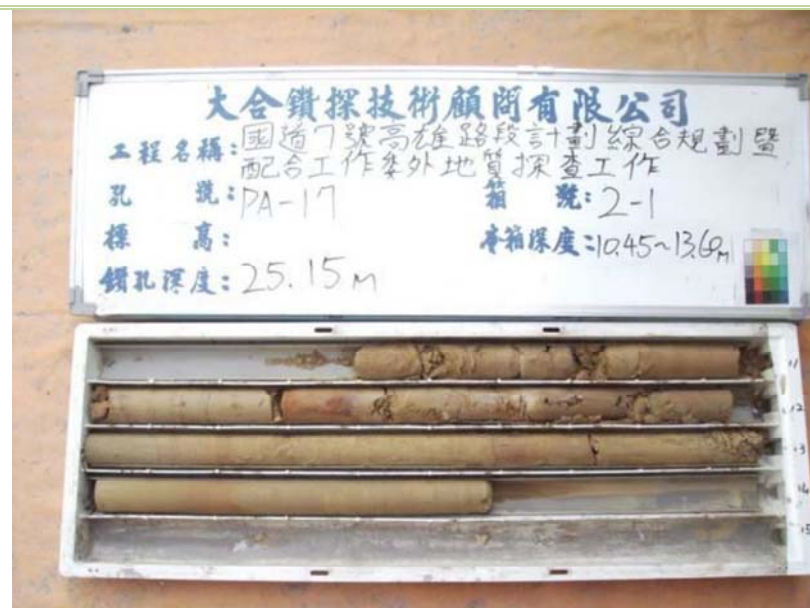 大合鑽探技術顧問有限公司
工程名稱：國道7號高雄路段計劃綜合規劃暨
配合工作委外地質探查工作
孔 號：PA-17 箱 號：2-1
標 高： 本箱深度：10.45~13.60M
鑽孔深度：25.15M
11
12
13
14
15